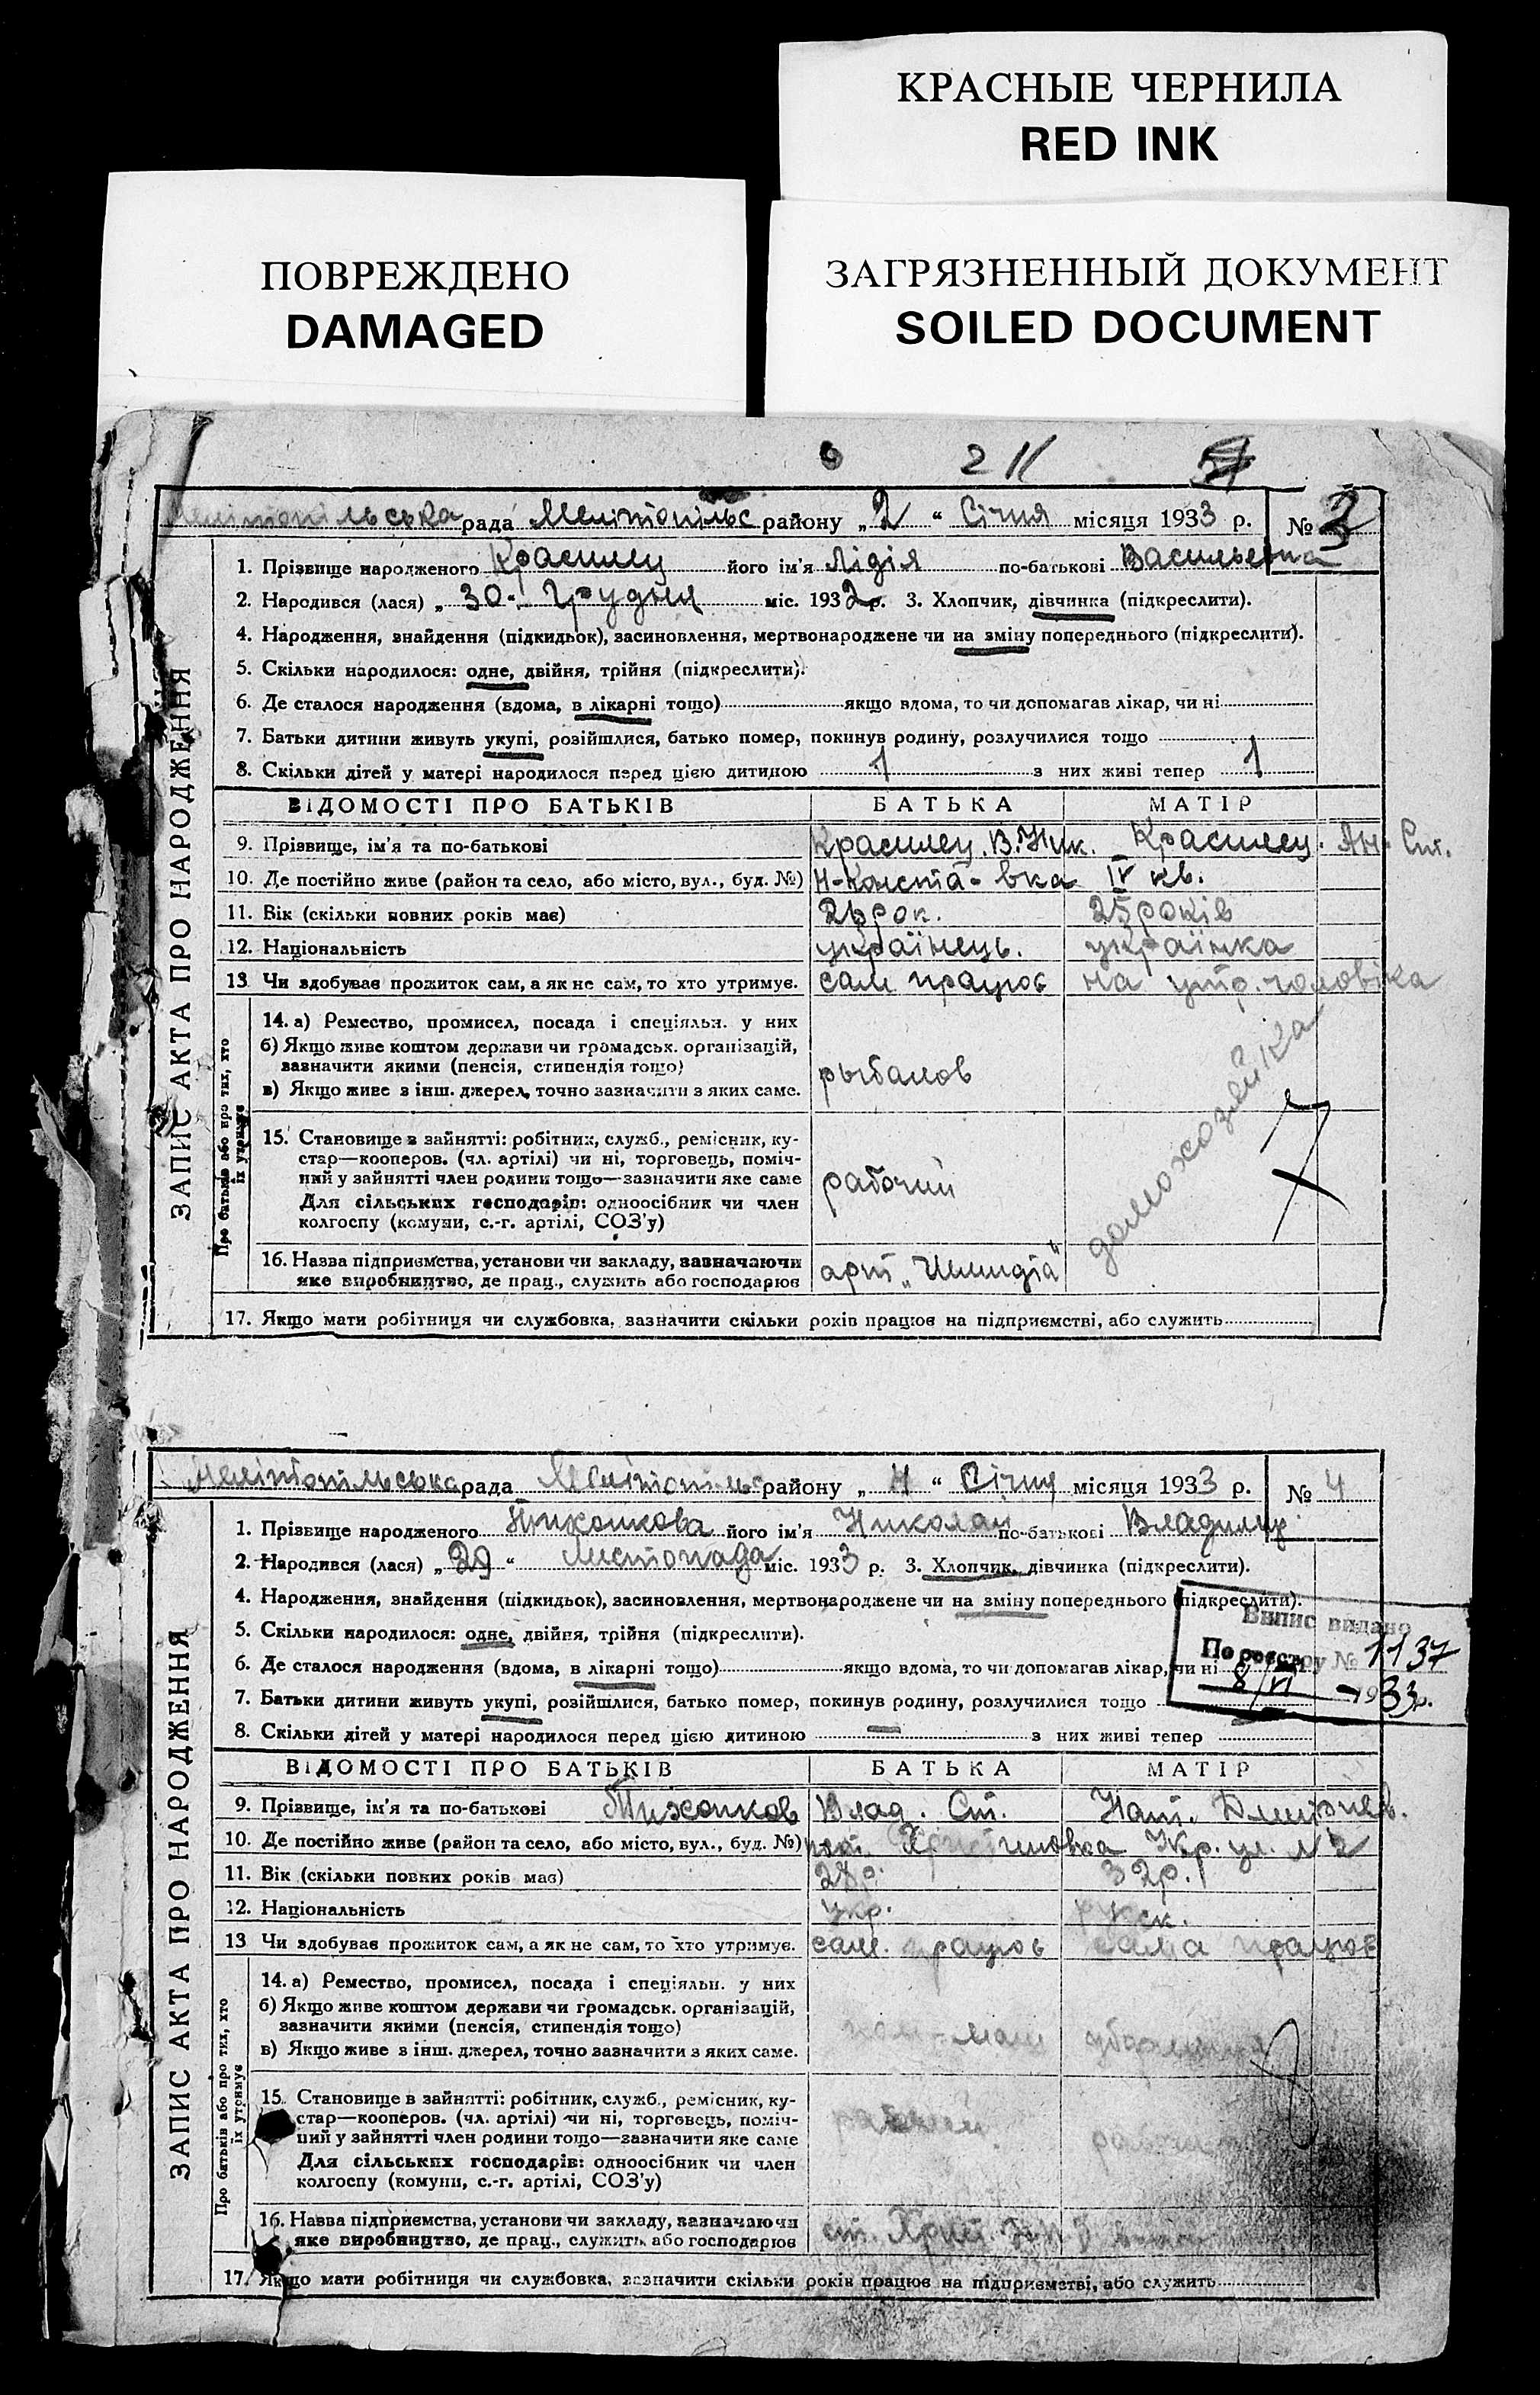 КРАСНЫЕ ЧЕРНИЛА
RED INK
ПОВРЕЖДЕНО
DAMAGED
ЗАГРЯЗНЕННЫЙ ДОКУМЕНТ
SOILED DOCUMENT
2 11
Мелітопільська рада Мелітопільс району „2“ Січня місяця 1933 р. № 3
ЗАПИС АКТА ПРО НАРОДЖЕННЯ
1. Прізвище народженого Красилец його ім'я Лідія по-батькові Васильевна
2. Народився (лася) „30. Грудня міс. 1932 р. 3. Хлопчик, дівчинка (підкреслити).
4. Народження, знайдення (підкидьок), засиновлення, мертвонароджене чи на зміну попереднього (підкреслити).
5. Скільки народилося: одне, двійня, трійня (підкреслити).
6. Де сталося народження (вдома, в лікарні тощо) якщо вдома, то чи допомагав лікар, чи ні
7. Батьки дитини живуть укупі, розійшлися, батько помер, покинув родину, розлучилися тощо
8. Скільки дітей у матері народилося перед цією дитиною 1 з них живі тепер 1
ВІДОМОСТІ ПРО БАТЬКІВ БАТЬКА МАТІР
9. Прізвище, ім'я та по-батькові Красилец. В. Ник. Красилец. Ан. Ст.
10. Де постійно живе (район та село, або місто, вул., буд. №) Н-Конста-вка IV кв.
11. Вік (скільки повних років має) 26 рок. 25 років
12. Національність українець. українка
13 Чи здобував прожиток сам, а як не сам, то хто утримує. сам працює на утр. чоловіка
Про батьків або про тих, хто їх утримує
14. а) Ремество, промисел, посада і спеціяльн. у них
б) Якщо живе коштом держави чи громадськ. організацій,
зазначити якими (пенсія, стипендія тощо)
в) Якщо живе з інш. джерел, точно зазначити з яких саме.
рыбалов
домохозяйка
15. Становище в зайнятті: робітник, служб., ремісник, ку-
стар—кооперов. (чл. артілі) чи ні, торговець, поміч-
ний у зайнятті член родини тощо—зазначити яке саме
Для сільських господарів: одноосібник чи член
колгоспу (комуни, с.-г. артілі, СОЗ'у)
рабочий
16. Назва підприємства, установи чи закладу, зазначаючи
яке виробництво, де прац., служить або господарює
арт
17. Якщо мати робітниця чи службовка, зазначити скільки років працює на підприємстві, або служить
Мелітопільська рада Мелітопільс району „4“ Січня місяця 1933 р. № 4
ЗАПИС АКТА ПРО НАРОДЖЕННЯ
1. Прізвище народженого його ім'я Николай по-батькові Владимир.
2. Народився (лася) „29“ Листопада міс. 1933 р. 3. Хлопчик, дівчинка (підкреслити).
4. Народження, знайдення (підкидьок), засиновлення, мертвонароджене чи на зміну попереднього (підкреслити).
5. Скільки народилося: одне, двійня, трійня (підкреслити).
6. Де сталося народження (вдома, в лікарні тощо) якщо вдома, то чи допомагав лікар, чи ні
7. Батьки дитини живуть укупі, розійшлися, батько помер, покинув родину, розлучилися тощо
8. Скільки дітей у матері народилося перед цією дитиною — з них живі тепер —
Випис видано
По реєстру № 1137
8/VI 1933р.
ВІДОМОСТІ ПРО БАТЬКІВ БАТЬКА МАТІР
9. Прізвище, ім'я та по-батькові Влад. Ст. Нат. Дмитриев.
10. Де постійно живе (район та село, або місто, вул., буд. №) Укр. ул. № 2
11. Вік (скільки повних років має) 28р. 32р.
12. Національність укр. русск.
13 Чи здобував прожиток сам, а як не сам, то хто утримує. сам. працює сама працює
Про батьків або про тих, хто їх утримує
14. а) Ремество, промисел, посада і спеціяльн. у них
б) Якщо живе коштом держави чи громадськ. організацій,
зазначити якими (пенсія, стипендія тощо)
в) Якщо живе з інш. джерел, точно зазначити з яких саме.
15. Становище в зайнятті: робітник, служб., ремісник, ку-
стар—кооперов. (чл. артілі) чи ні, торговець, поміч-
ний у зайнятті член родини тощо—зазначити яке саме
Для сільських господарів: одноосібник чи член
колгоспу (комуни, с.-г. артілі, СОЗ'у)
16. Назва підприємства, установи чи закладу, зазначаючи
яке виробництво, де прац., служить або господарює
ст.
17. Якщо мати робітниця чи службовка, зазначити скільки років працює на підприємстві, або служить